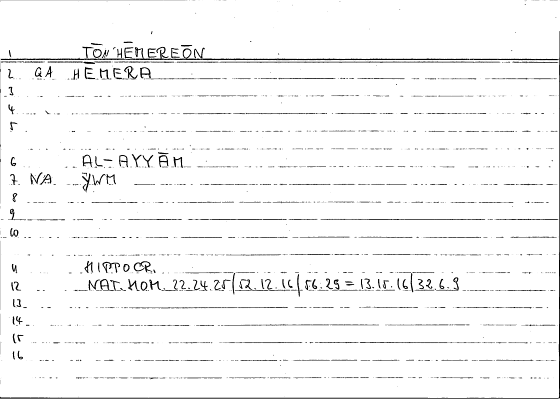 1 TŌN HĒMEREŌN
2 GA HĒMERA
3
4
5
6 AL-AYYĀM
7 NA YWM
8
9
10
11 HIPPOCR.
12 NAT.HOM. 22.24.25|52.12.16|56.29 = 13.15.16|32.6.9
13
14
15
16